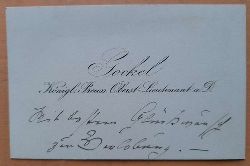 Gockel
Königl. Preuss. Oberst-Lieutenant a. D.
mit besten Glückwünsch
zur Verlobung. —